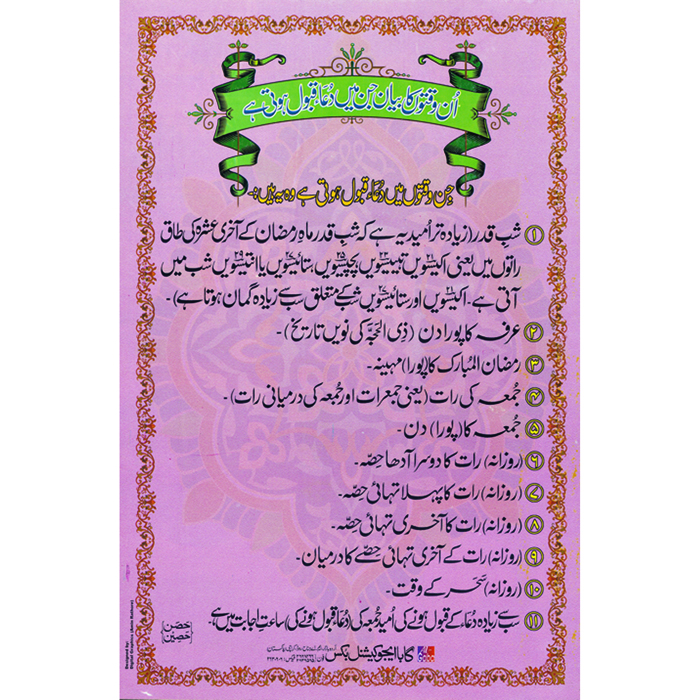 اُن وقتوں کا بیان جن میں دُعاء قبول ہوتی ہے
جن وقتوں میں دُعاء قبول ہوتی ہے وہ یہ ہیں:-
① شبِ قدر (زیادہ تر اُمید یہ ہے کہ شبِ قدر ماہِ رمضان کے آخری عشرہ کی طاق
راتوں میں یعنی اکیسویں ۲۱ تیئیسویں ۲۳ پچیسویں ۲۵، ستائیسویں ۲۷ یا انتیسویں ۲۹ شب میں
آتی ہے۔ اکیسویں ۲۱ اور ستائیسویں ۲۷ شب کے متعلق سب سے زیادہ گمان ہوتا ہے)۔
② عرفہ کا پورا دن (ذی الحجّہ کی نویں تاریخ)۔
③ رمضان المُبارک کا (پورا) مہینہ۔
④ جُمعہ کی رات (یعنی جمعرات اور جُمعہ کی درمیانی رات)۔
⑤ جُمعہ کا (پورا) دن۔
⑥ (روزانہ) رات کا دوسرا آدھا حِصّہ۔
⑦ (روزانہ) رات کا پہلا تہائی حِصّہ۔
⑧ (روزانہ) رات کا آخری تہائی حِصّہ۔
⑨ (روزانہ) رات کے آخری تہائی حِصّے کا درمیان۔
⑩ (روزانہ) سَحَر کے وقت۔
⑪ سب سے زیادہ دُعاء کے قبول ہونے کی اُمید جُمعہ کی (دُعاء قبول ہونے کی) ساعتِ اجابت میں ہے۔
[حِصنِ حَصین]
گابا ایجوکیشنل بکس